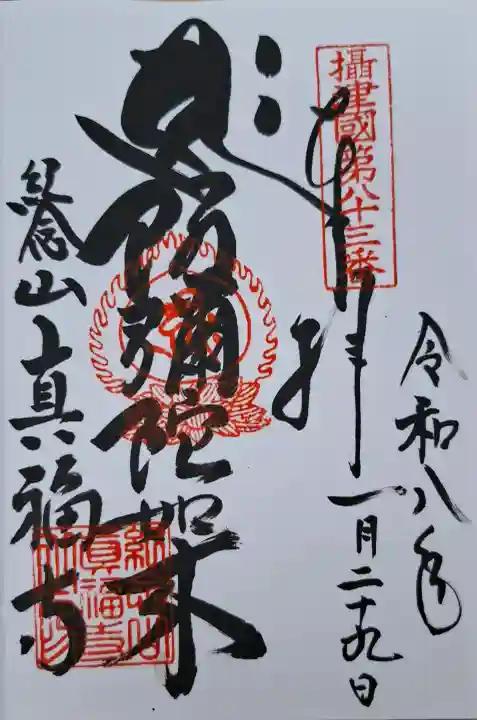 攝津國第八十三番
奉拝
令和八年
一月二十九日
阿彌陀如来
山真福寺
真福寺